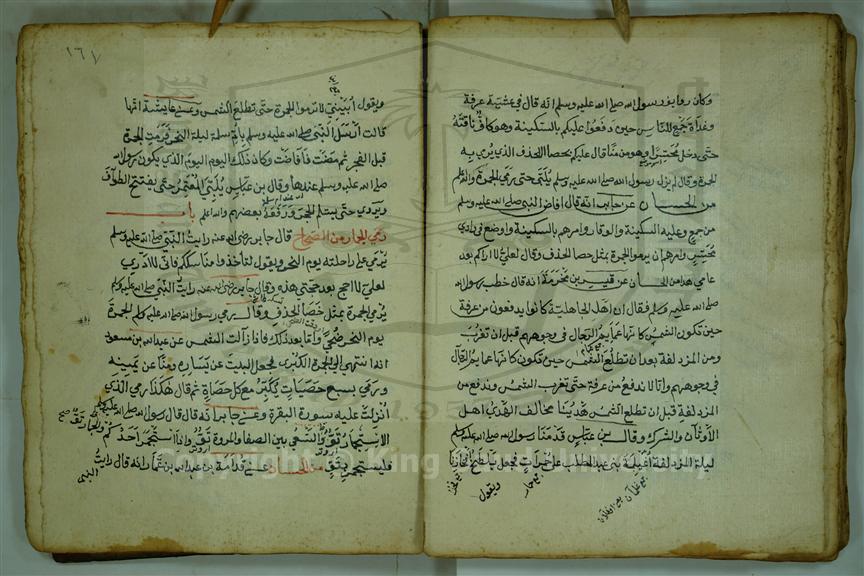 وكان رديف رسول الله صلى الله عليه وسلم انه قال في عشية عرفة
وغداة جمع للناس حين دفعوا عليكم بالسكينة وهو كاف ناقته
حتى دخل محسرا وهو من منا قال عليكم بحصا الخذف الذي يرمي به
الجمرة وقال لم يزل رسول الله صلى الله عليه وسلم يلبي حتى رمى الجمرة
من الحسان عن جابر انه قال افاض النبي صلى الله عليه وسلم
من جمع وعليه السكينة والوقار وامرهم بالسكينة واوضع في وادي
محسر وامرهم ان يرموا الجمرة بمثل حصا الخذف وقال لعلي لا اراكم بعد
عامي هذا من الحسان عن قيس بن مخرمة انه قال خطب رسول الله
صلى الله عليه وسلم فقال ان اهل الجاهلية كانوا يدفعون من عرفة
حين تكون الشمس كانها عمايم الرجال في وجوههم قبل ان تغرب
ومن المزدلفة بعد ان تطلع الشمس حين تكون كانها عمايم الرجال
في وجوههم وانا لا ندفع من عرفة حتى تغرب الشمس وندفع من
المزدلفة قبل ان تطلع الشمس هدينا مخالف لهدي اهل
الأوثان والشرك وقال بن عباس قدمنا رسول الله صلى الله عليه وسلم
ليلة المزدلفة اغيلمة بني عبد المطلب على حمرات فجعل يلطح افخاذنا
ويقول
١٦٧
ويقول أبيني لا ترموا الجمرة حتى تطلع الشمس وعن عايشة انها
قالت أرسل النبي صلى الله عليه وسلم بام سلمة ليلة النحر فرمت الجمرة
قبل الفجر ثم مضت فأفاضت وكان ذلك اليوم اليوم الذي يكون رسول الله
صلى الله عليه وسلم عندها وقال بن عباس يلبي المعتمر حتى يفتتح الطواف
ويروى حتى يستلم الحجر ورفعه بعضهم والله اعلم باب
رمي الجمار من الصحاح قال جابر رضى الله عنه رايت النبي صلى الله عليه وسلم
يرمي على راحلته يوم النحر ويقول لتأخذوا مناسككم فاني لا ادري
لعلي لا احج بعد حجتي هذه وقال جابر رضى الله عنه رايت النبي صلى الله عليه وسلم
يرمي الجمرة بمثل حصا الخذف وقال رمى رسول الله صلى الله عليه وسلم الجمرة
يوم النحر ضحى واما بعد ذلك فاذا زالت الشمس عن عبد الله بن مسعود
انه انتهى الى الجمرة الكبرى فجعل البيت عن يساره ومنا عن يمينه
ورمى بسبع حصيات يكبر مع كل حصاة ثم قال هكذا رمى الذي
أنزلت عليه سورة البقرة وعن جابر انه قال قال رسول الله صلى الله عليه وسلم
الاستجمار تو والسعي بين الصفا والمروة تو واذا استجمر احدكم
فليستجمر بتو من الحسان عن قدامة بن عبد الله بن عمار انه قال رايت
النبي
Copyright © King Saud University